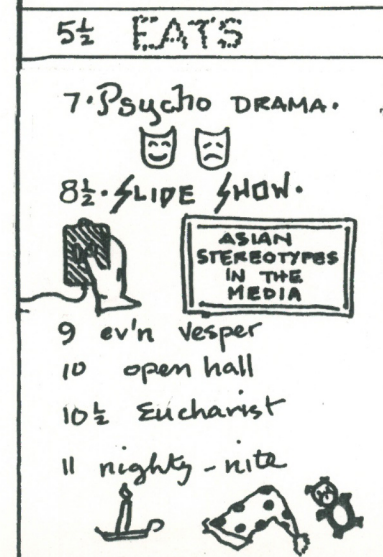 5½ EATS
7·Psycho DRAMA.
8½·SLIDE SHOW.
ASIAN
STEREOTYPES
IN THE
MEDIA
9 ev'n vesper
10 open hall
10½ Eucharist
11 nighty-nite